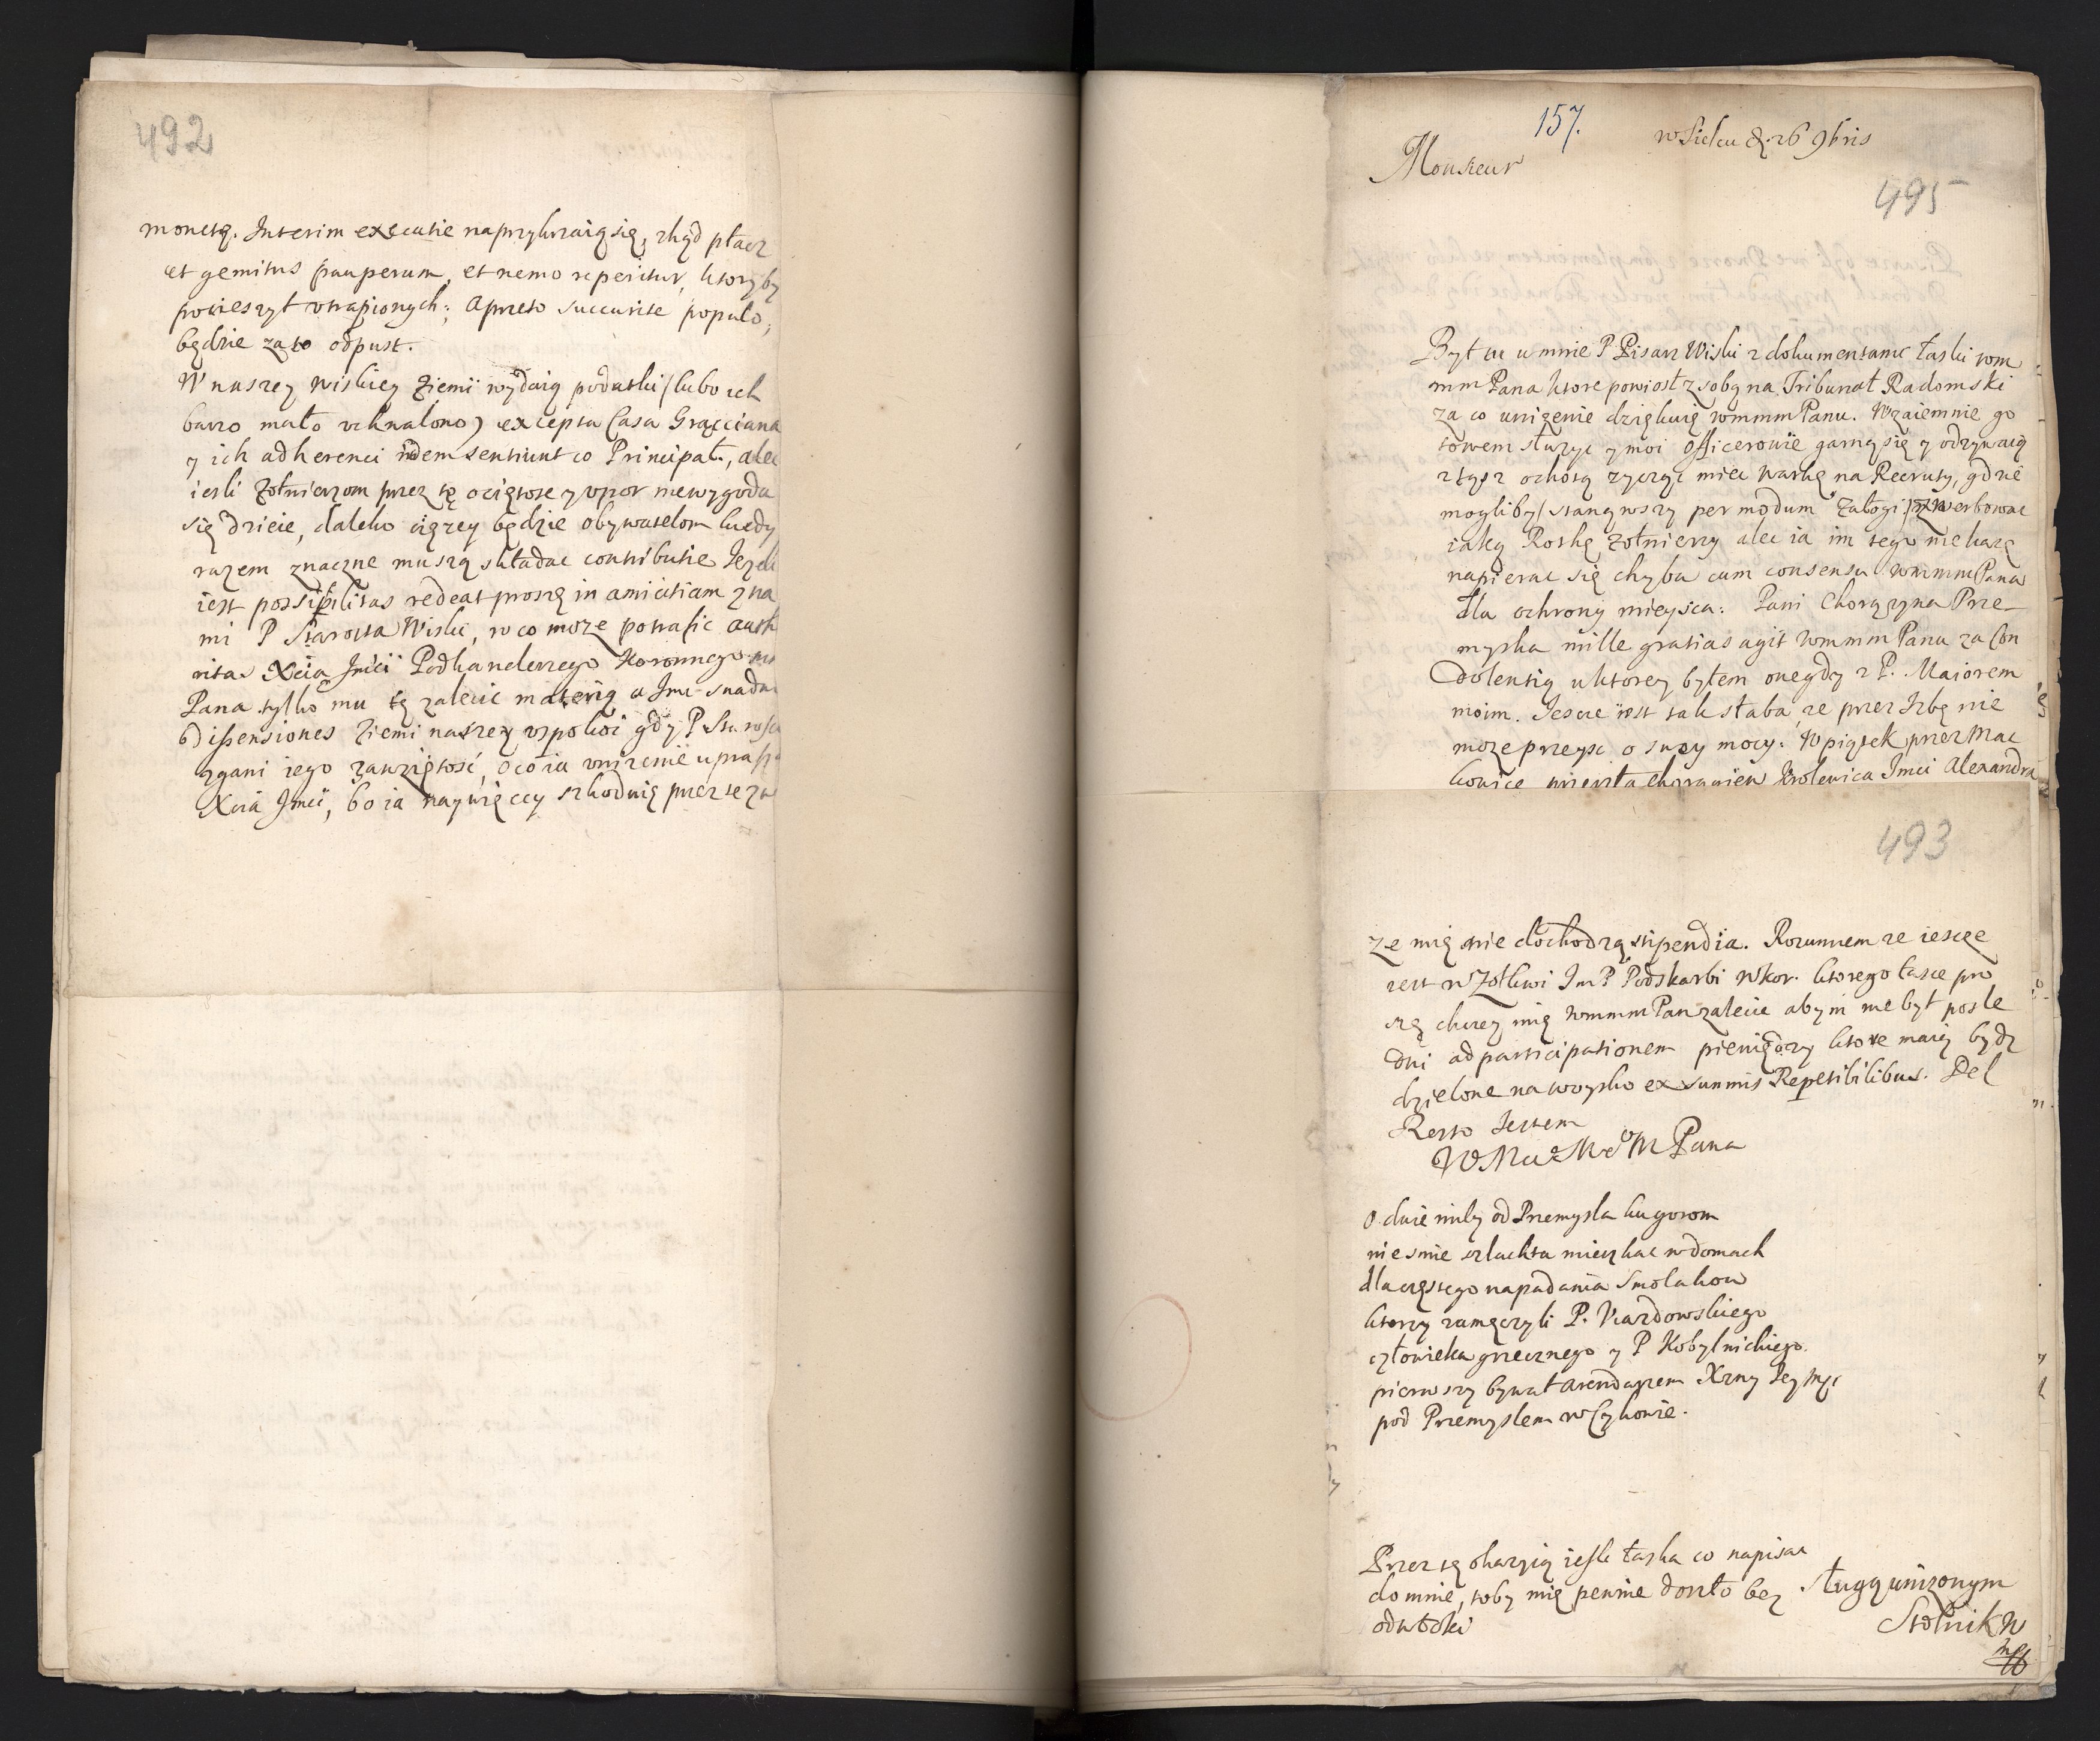 492
monetą. Interim executie naprzykrzaią się, zkąd płacz
et gemitus pauperum, et nemo reperitur, ktoryby
pocieszył utrapionych; a preto succurite populo,
będzie za to odpust.
W naszey Wiskiey Ziemi wydaią podatki (lubo ich
barzo mało uchwalono) excepta Casa Grącciana
y ich adherenci idem sentiunt co Principał., alec
iesli Zołnierzom przez tę ociętosc y upor niewygoda
się dzieie, daleko cięzey będzie obywatelom kiedy
razem znaczne muszą składac contributie Jezeli
iest possibilitas redeat proszę in amicitiam z na
mi P Starosta Wiski, w co moze potrafic auth
ritas Xcia Jmci Podkanclerzego Koronnego
Pana tylko mu tę zalecic materią a Jmc snadn
dissensiones Ziemi naszey uspokoi gdy P Starosta
zgani iego zawziętosć, o co ia unizenie uprasza
Xcia Jmci, bo ia naywięcey szkoduię przez to
157.
w Sielcu d. 26 9bris
Monsieur
495
Był tu u mnie P Pisarz Wiski z dokumentami łaski wm
mm Pana ktore powiosł z sobą na Tribunał Radomski
za co unizenie dziękuię wmmm Panu. Wzaiemnie go
towem słuzyc y moi Officerowie garną się y odzywaią
z tąsz ochotą zycząc miec Warkę na Recruty, gdzie
mogliby (stanąwszy per modum załogi) zwerbowac
iaką Roskę zołnierzy alec ia im tego nie kazę
napierac się chyba cum consensu wmmm Pana
dla ochrony mieysca: Pani Chorązyna Prze-
myska mille gratias agit wmmm Panu za Con
dolentią u ktorey byłem onegdy z P. Maiorem
moim. Jescze iest tak słaba, ze przez Izbę nie
moze przeysc o swey mocy. W piątek przez Mac
kowice przeszła chorągiew Krolewica Jmci Alexandra
493
ze mię nie dochodzą stipendia. Rozumiem ze iescze
iest w Zołkwi Jm P Podskarbi W Kor. ktorego łasce pro
szę chciey mię wmmm Pan zalecic abym nie był posle
dni ad participationem pieniędzy ktore maią bydz
dzielone na woysko ex summis Repetibilibus. Del
Resto Jestem
WMcMMM Pana
O dwie mile od Przemysla ku gorom
nie smie szlachta mieszkac w domach
dla częstego napadania Smolakow
ktorzy zamęczyli P. Uiazdowskiego
człowieka grzecznego y P Kobylnickiego.
pierwszy bywał arendarzem Xzny Jeymci
pod Przemyslem w Cykowie.
Przez tę okazyią iesli łaska co napisac
do mnie, toby mię pewnie doszło bez
odwłoki
sługą unizonym
Stolnik W
mp